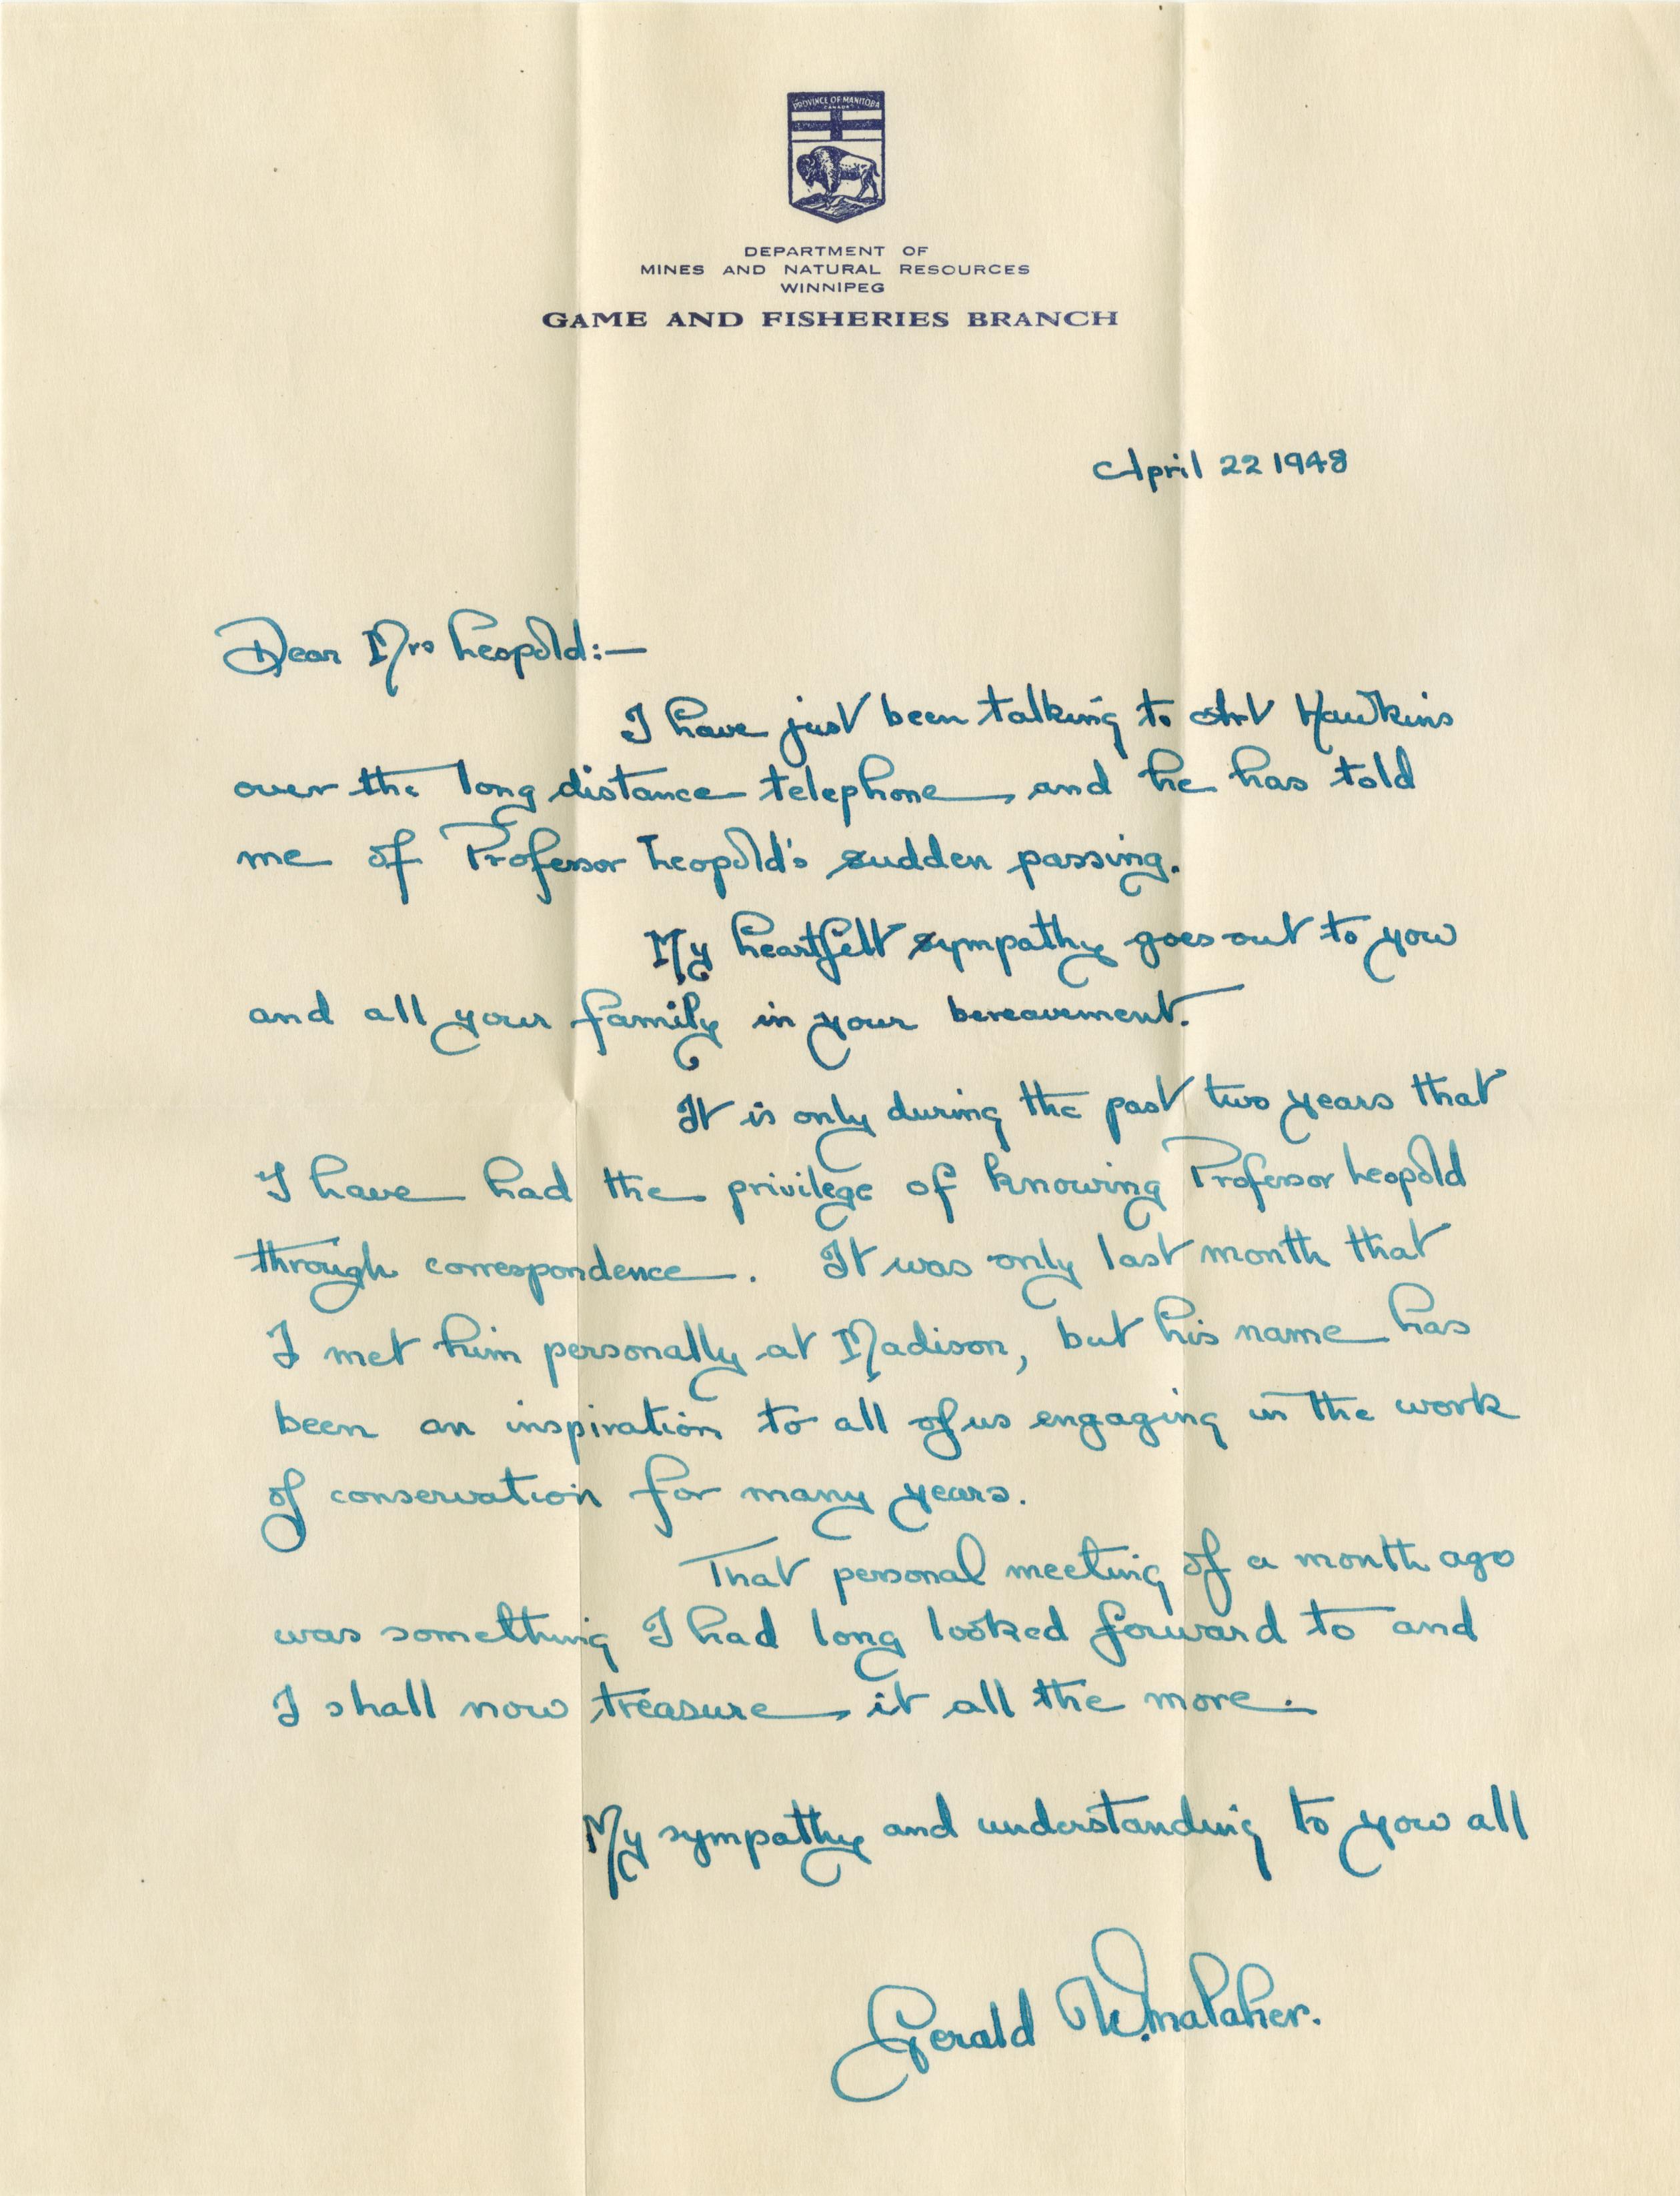 PROVINCE OF MANITOBA
CANADA
DEPARTMENT OF
MINES AND NATURAL RESOURCES
WINNIPEG
GAME AND FISHERIES BRANCH
April 22 1948
Dear Mrs Leopold:—
I have just been talking to Art Hawkins
over the long distance telephone and he has told
me of Professor Leopold's sudden passing.
My heartfelt sympathy goes out to you
and all your family in your bereavement.
It is only during the past two years that
I have had the privilege of knowing Professor Leopold
through correspondence. It was only last month that
I met him personally at Madison, but his name has
been an inspiration to all of us engaging in the work
of conservation for many years.
That personal meeting of a month ago
was something I had long looked forward to and
I shall now treasure it all the more.
My sympathy and understanding to you all
Gerald W. Malaher.